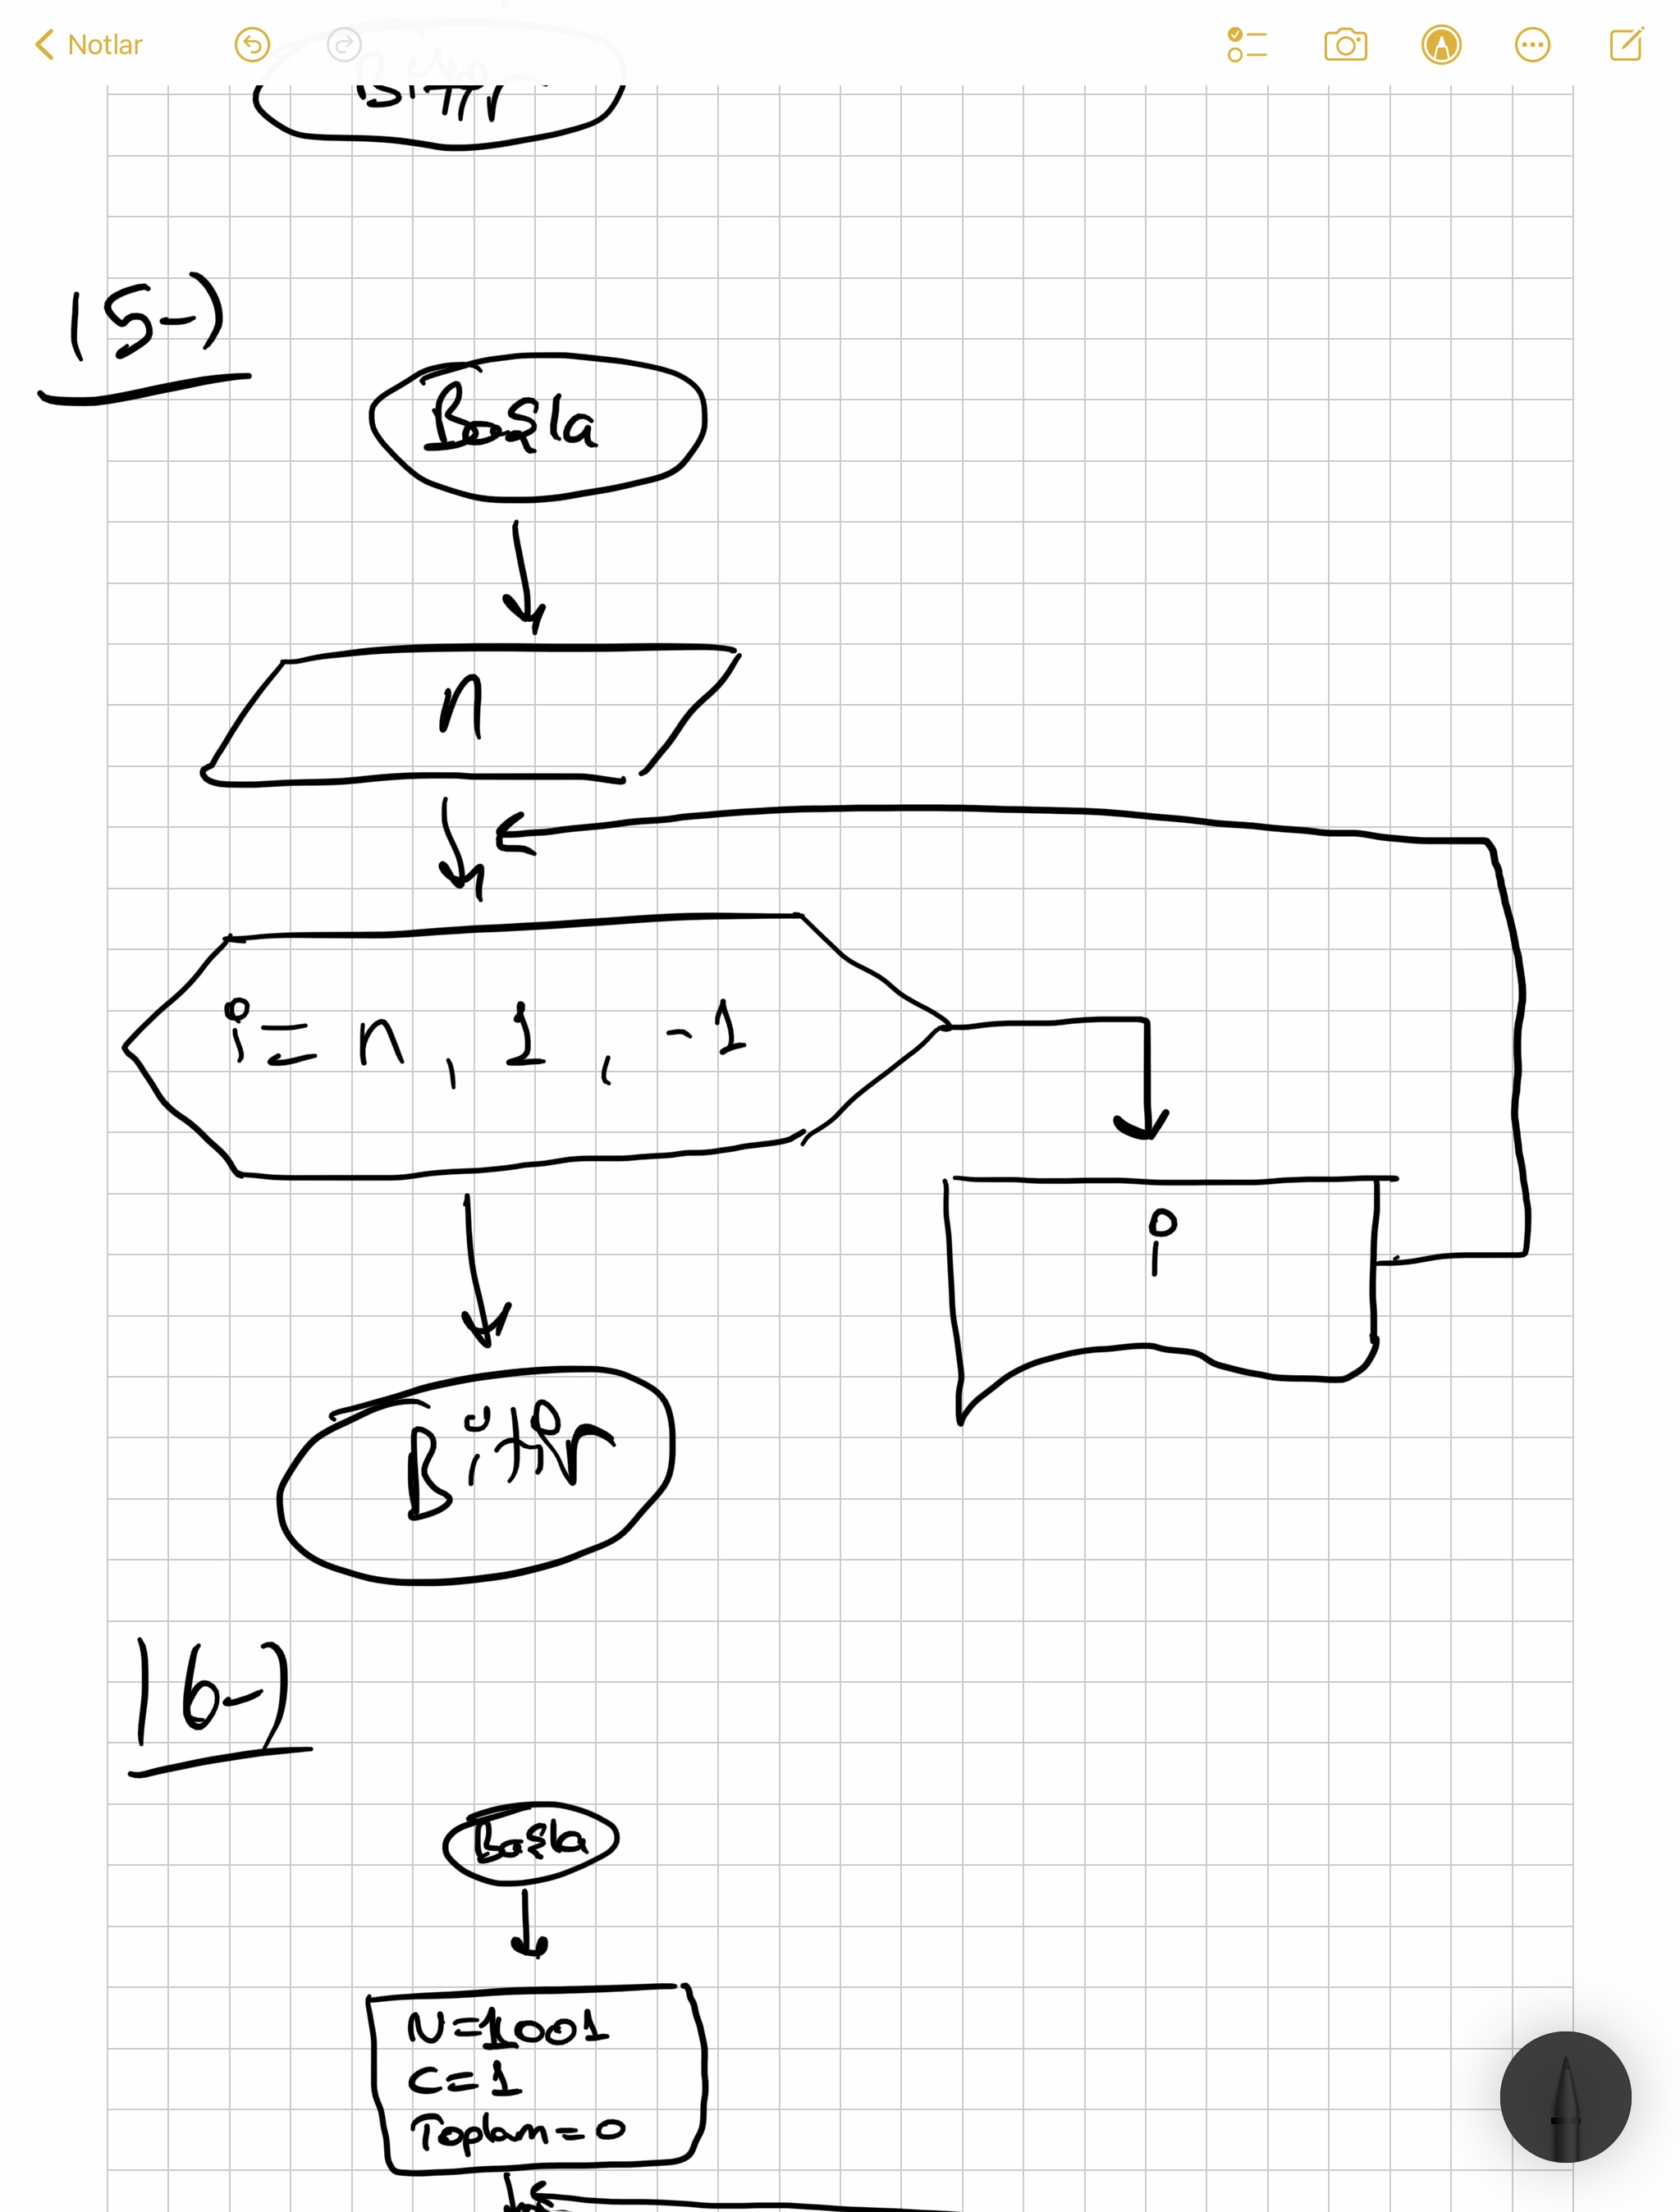 Notlar
Bitir
15-)
Başla
n
i = n, 1, -1
i
Bitir
16-)
Başla
N=1001
C=1
Toplam=0